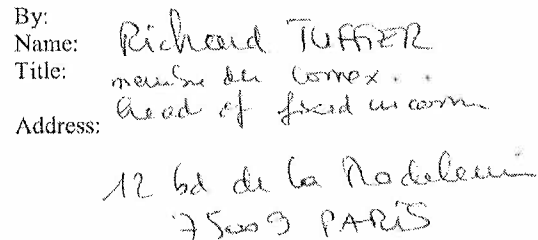 By:
Name: Richard TUFFIER
Title: membre du Comex..
Head of fixed income
Address:
12 bd de la Madeleine
75009 PARIS